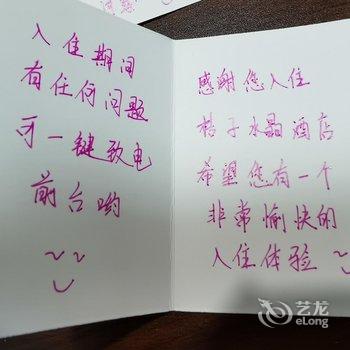 入住期间
有任何问题
可一键致电
前台哟
感谢您入住
桔子水晶酒店
希望您有一个
非常愉快的
入住体验
艺龙
eLong